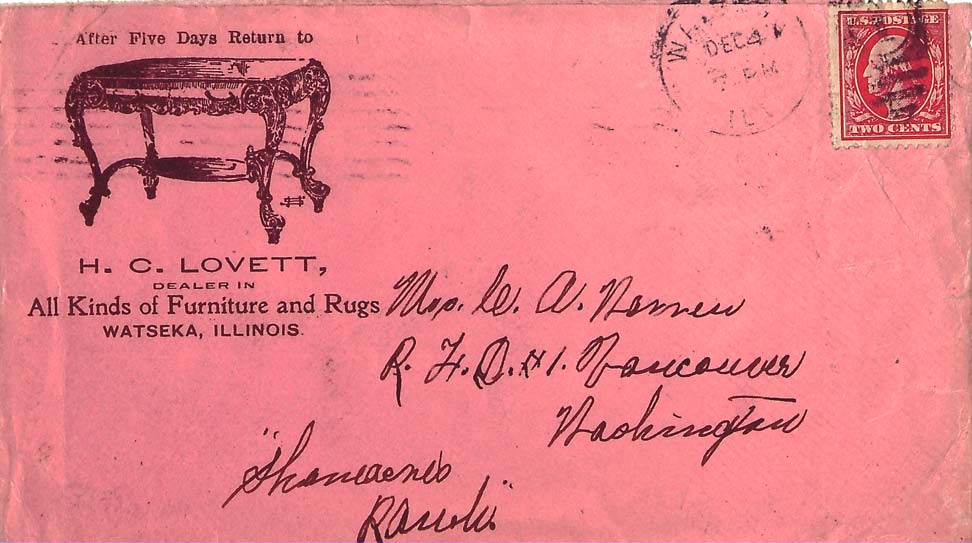 After Five Days Return to
H. C. LOVETT,
DEALER IN
All Kinds of Furniture and Rugs
WATSEKA, ILLINOIS.
DEC 4
PM
ILL
U.S. POSTAGE
TWO CENTS
Mrs. W. A.
R. F. D. #1. Vancouver
Washington
"
Ranch"